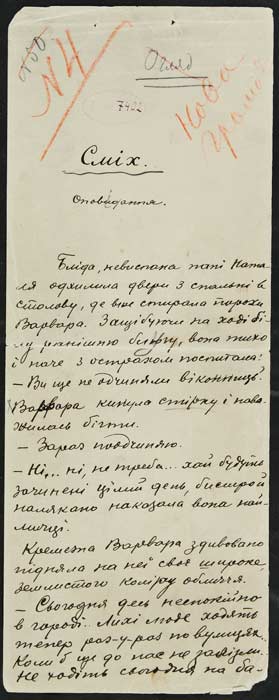 №4
Огляд
Нова
громад
7422
Сміх.
Оповідання.
Бліда, невиспана пані Ната-
ля одхилила двері з спальні в
столову, де вже стирала порохи
Варвара. Защібуючи на ході бі-
лу ранішню блюзку, вона тихо
і наче з острахом поспитала:
— Ви ще не одчиняли віконниць?
Варвара кинула стірку і нава-
жилась бігти.
— Зараз поодчиняю.
— Ні,.. ні, не треба... хай будуть
зачинені цілий день, бистро й
налякано наказала вона най-
мичці.
Кремезна Варвара здивовано
підняла на неї своє широке,
землистого коліру обличчя.
— Сьогодня десь неспокійно
в городі.. Лихі люде ходять
тепер раз-у-раз по вулицях,
Коли б ще до нас не зайшли.
Не ходіть сьогодня на ба-